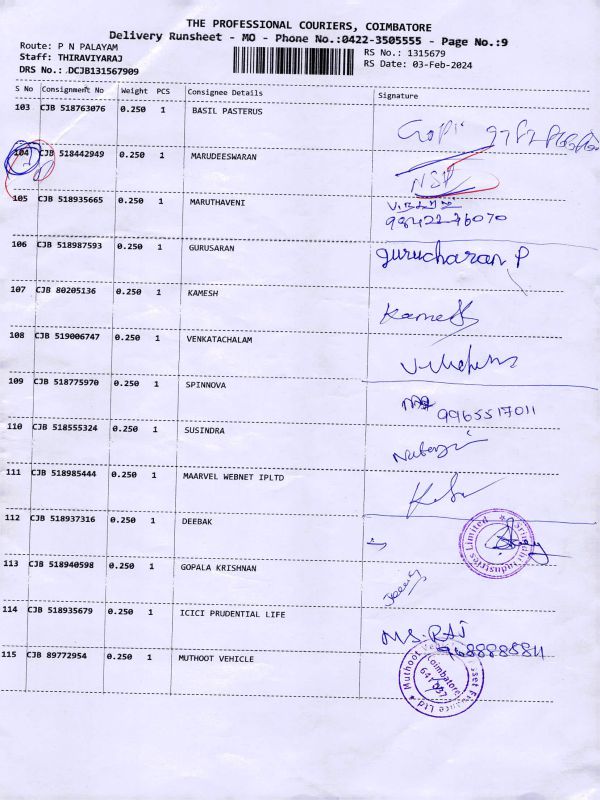 THE PROFESSIONAL COURIERS, COIMBATORE
Delivery Runsheet - MO - Phone No.:0422-3505555 - Page No.:9
Route: P N PALAYAM
Staff: THIRAVIYARAJ
DRS No.: DCJB131567909
RS No.: 1315679
RS Date: 03-Feb-2024
S No Consignment No Weight PCS Consignee Details Signature
103 CJB 518763076 0.250 1 BASIL PASTERUS
Gopi
104 CJB 518442949 0.250 1 MARUDEESWARAN
NSP
105 CJB 518935665 0.250 1 MARUTHAVENI
98422 76070
106 CJB 518987593 0.250 1 GURUSARAN
gurucharan P
107 CJB 80205136 0.250 1 KAMESH
Kamesh
108 CJB 519006747 0.250 1 VENKATACHALAM
109 CJB 518775970 0.250 1 SPINNOVA
9965517011
110 CJB 518555324 0.250 1 SUSINDRA
111 CJB 518985444 0.250 1 MAARVEL WEBNET IPLTD
112 CJB 518937316 0.250 1 DEEBAK
Industries Limited
113 CJB 518940598 0.250 1 GOPALA KRISHNAN
114 CJB 518935679 0.250 1 ICICI PRUDENTIAL LIFE
MS. RAJ
9688888811
115 CJB 89772954 0.250 1 MUTHOOT VEHICLE
Muthoot Vehicle & Asset Finance Ltd.
Coimbatore
641 037